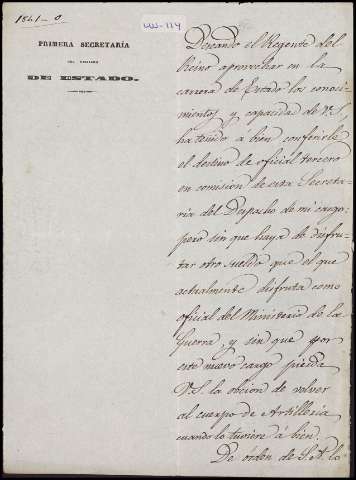 1841-0
LUU-114
PRIMERA SECRETARÍA
DEL DESPACHO
DE ESTADO.
Deseando el Regente del
Reino aprovechar en la
carrera de Estado los conoci-
mientos y capacidad de V.S,
ha tenido a bien conferirle
el destino de oficial tercero
en comision de esta Secreta-
ria del Despacho de mi cargo,
pero sin que haya de disfru-
tar otro sueldo que el que
actualmente disfruta como
oficial del Ministerio de la
Guerra, y sin que por
este nuevo cargo pierda
V.S. la obcion de volver
al cuerpo de Artilleria
cuando lo tuviere á bien.
De órden de S.A. lo